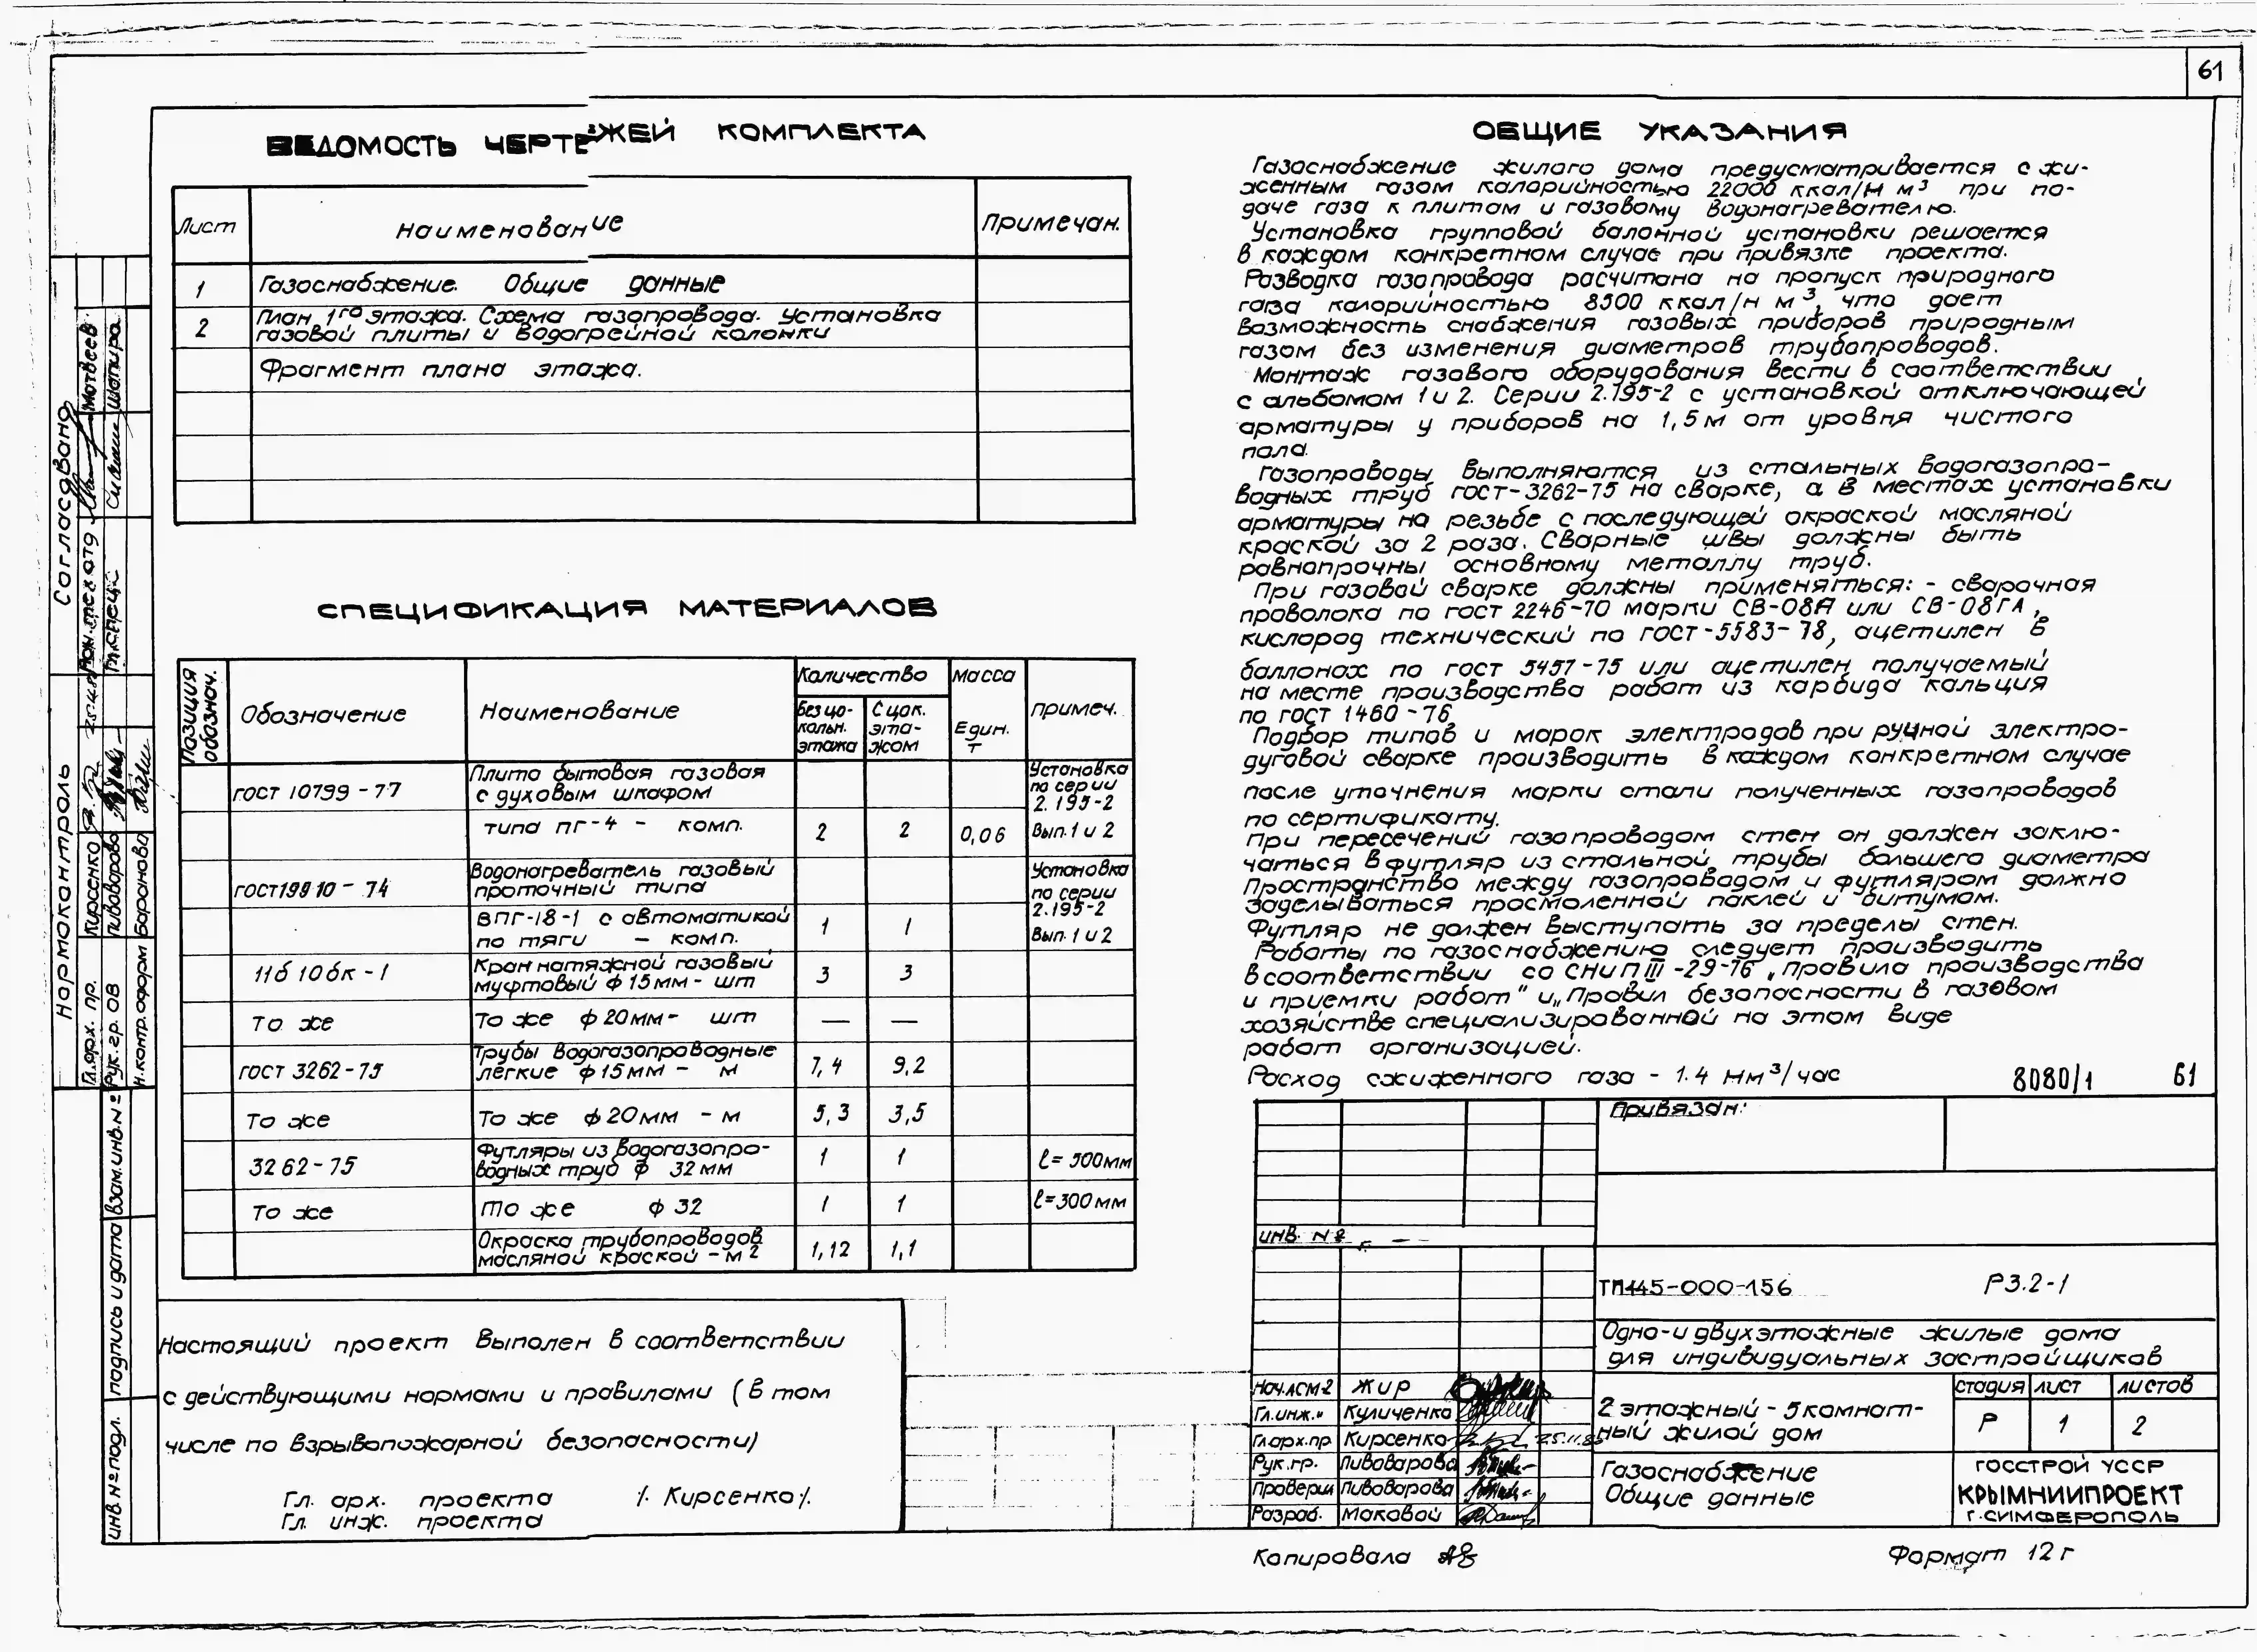 61
ВЕДОМОСТЬ ЧЕРТЕЖЕЙ КОМПЛЕКТА
Лист Наименование Примечан.
1 Газоснабжение. Общие данные
2 План 1го этажа. Схема газопровода. Установка
газовой плиты и водогрейной колонки
Фрагмент плана этажа.
СПЕЦИФИКАЦИЯ МАТЕРИАЛОВ
Позиция обознач.
Обозначение
Наименование
Количество
Без цо-
кольн.
этажа
С цок.
эта-
жом
Масса
Един.
т
Примеч.
ГОСТ 10799-77 Плита бытовая газовая
с духовым шкафом
типа ПГ-4 - комп. 2 2 0,06
Установка
по серии
2.195-2
Вып. 1 и 2
ГОСТ 19910-74 Водонагреватель газовый
проточный типа
ВПГ-18-1 с автоматикой
по тяги - комп. 1 1
Установка
по серии
2.195-2
Вып. 1 и 2
11б 10бк-1 Кран натяжной газовый
муфтовый ф 15мм - шт 3 3
То же То же ф 20мм - шт — —
ГОСТ 3262-75 Трубы водогазопроводные
легкие ф 15мм - м 7,4 9,2
То же То же ф 20мм - м 5,3 3,5
3262-75 Футляры из водогазопро-
водных труб ф 32мм 1 1 ℓ=500мм
То же То же ф 32 1 1 ℓ=300мм
Окраска трубопроводов
масляной краской - м2 1,12 1,1
Настоящий проект выполен в соответствии
с действующими нормами и правилами (в том
числе по взрывопожарной безопасности)
Гл. арх. проекта /. Кирсенко/.
Гл. инж. проекта
ОБЩИЕ УКАЗАНИЯ
Газоснабжение жилого дома предусматривается сжи-
женным газом калорийностью 22000 ккал/н м³ при по-
даче газа к плитам и газовому водонагревателю.
Установка групповой балонной установки решается
в каждом конкретном случае при привязке проекта.
Разводка газопровода расчитана на пропуск природного
газа калорийностью 8500 ккал/н м³, что дает
возможность снабжения газовых приборов природным
газом без изменения диаметров трубопроводов.
Монтаж газового оборудования вести в соответствии
с альбомом 1 и 2. Серии 2.195-2 с установкой отключающей
арматуры у приборов на 1,5м от уровня чистого
пола.
Газопроводы выполняются из стальных водогазопро-
водных труб ГОСТ-3262-75 на сварке, а в местах установки
арматуры на резьбе с последующей окраской масляной
краской за 2 раза. Сварные швы должны быть
равнопрочны основному металлу труб.
При газовой сварке должны применяться: - сварочная
проволока по ГОСТ 2246-70 марки СВ-08А или СВ-08ГА,
кислород технический по ГОСТ-5583-78, ацетилен в
баллонах по ГОСТ 5457-75 или ацетилен, получаемый
на месте производства работ из карбида кальция
по ГОСТ 1460-76
Подбор типов и марок электродов при ручной электро-
дуговой сварке производить в каждом конкретном случае
после уточнения марки стали полученных газопроводов
по сертификату.
При пересечений газопроводом стен он должен заклю-
чаться в футляр из стальной трубы большего диаметра
Пространство между газопроводом и футляром должно
заделываться просмоленной паклей и битумом.
Футляр не должен выступать за пределы стен.
Работы по газоснабжению следует производить
в соответствии со СНиП III-29-76 „Правила производства
и приемки работ" и „Правил безопасности в газовом
хозяйстве специализированной на этом виде
работ организацией.
Расход сжиженного газа - 1.4 нм³/час
8080/1 61
Привязан:
ИНВ. №
ТП 145-000-156 РЗ.2-1
Одно- и двухэтажные жилые дома
для индивидуальных застройщиков
Нач.АСМ-2 Жир
Гл.инж." Куличенко
Гл.арх.пр Кирсенко
Рук.гр. Пивоварова
Проверил Пивоварова
Разраб. Маковой
2 этажный - 5 комнат-
ный жилой дом
Стадия Лист Листов
Р 1 2
Газоснабжение
Общие данные
ГОССТРОЙ УССР
КРЫМНИИПРОЕКТ
г. СИМФЕРОПОЛЬ
Копировала
Формат 12г
Согласовано
Матвеев
Шапиро
Гл.спец.
Нормоконтроль
Гл.арх. пр. Кирсенко
Рук. гр. ОВ Пивоварова
Н.контр.оформ Баранова
Взам.инв.№
Подпись и дата
Инв.№ подл.